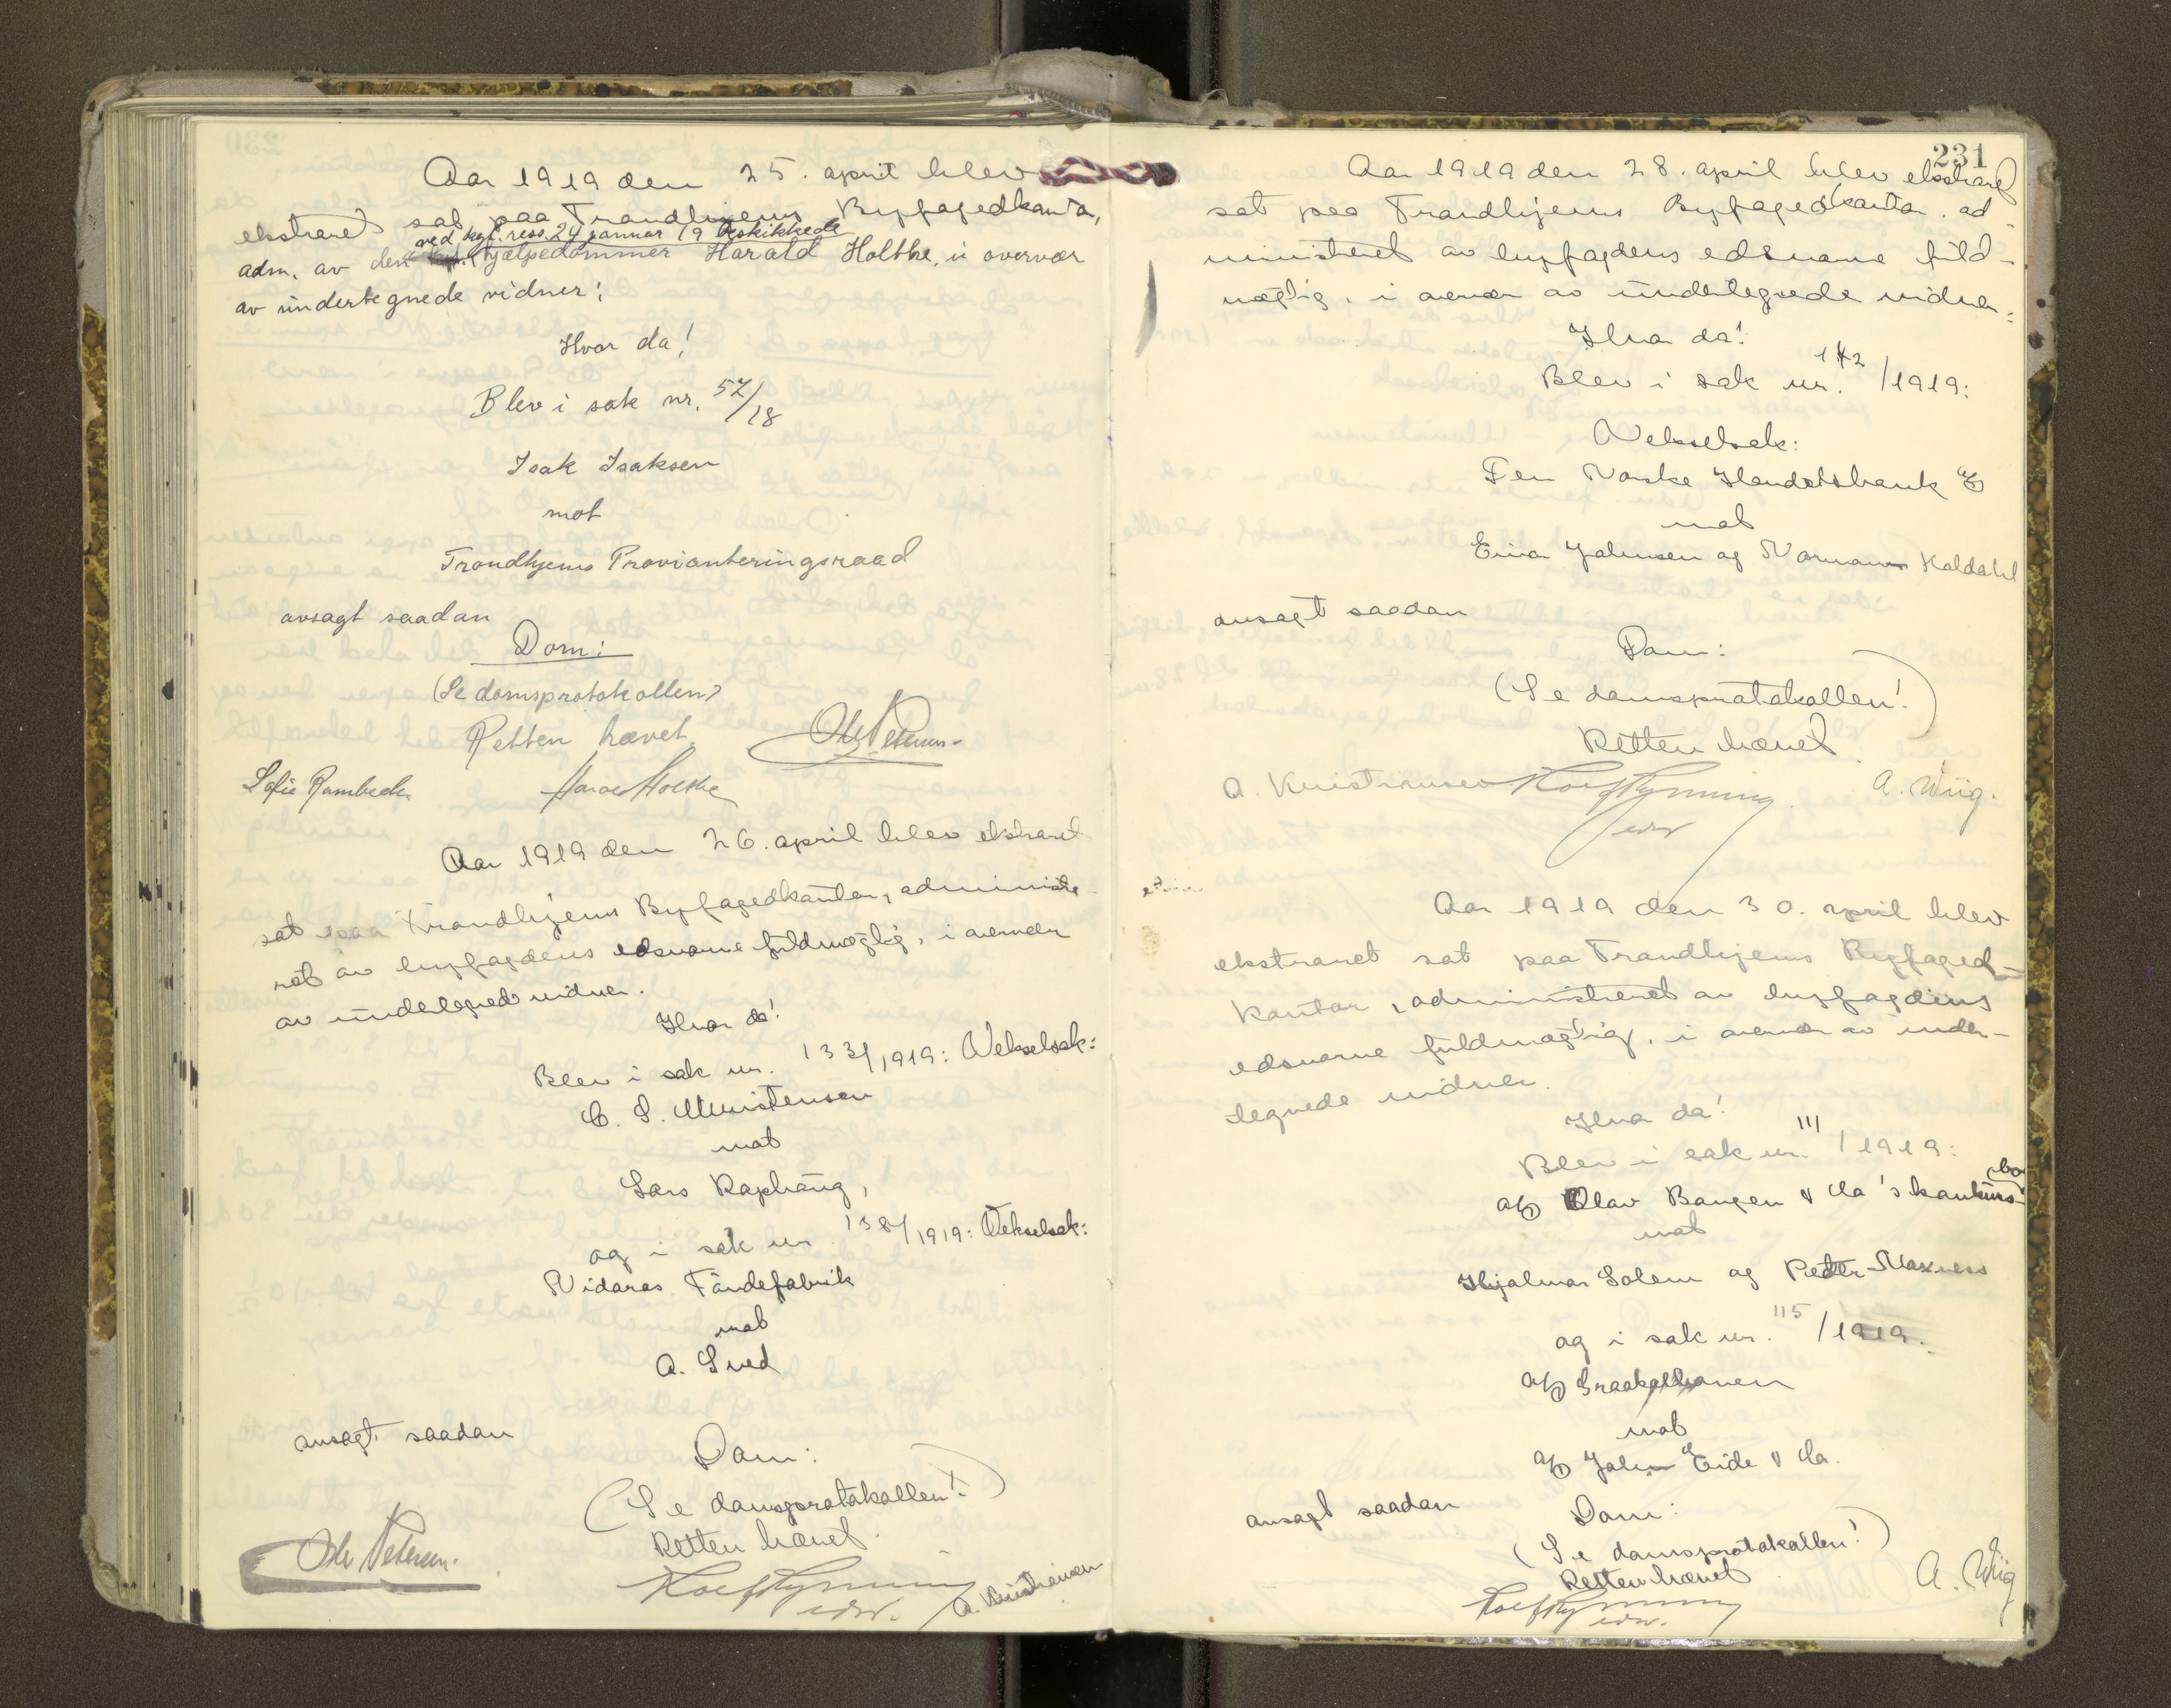 Aar 1919 den 25. april blev
ekstraret sat paa Trondhjems Byfogedkontor,
ved kgl. ress. 24 januar 19 beskikkede
adm. av den hjælpedommer Harald Holthe, i overvær
av undertegnede vidner:
Hvor da!
Blev i sak nr. 57/18
Isak Isaksen
mot
Trondhjems Provianteringsraad
avsagt saadan
Dom:
(Se domsprotokollen)
Retten hævet
Ole Petersen.
Sofie Rambeck.
Harald Holthe
Aar 1919 den 26. april blev ekstraret
sat paa Trondhjems Byfogedkontor, administre-
ret av byfogdens edsvorne fuldmægtig, i overvær
av undertegnede vidner.
Hvor da!
Blev i sak nr. 133/1919: Vekselsak:
C. S. Christensen
mot
Lars Raphaug,
og i sak nr. 138/1919: Vekselsak:
Nidaros Tøndefabrik
mot
A. Sved
avsagt saadan
Dom:
(Se domsprotokollen!)
Retten hævet.
Ole Petersen.
edsv.
A. Kristiansen
231
Aar 1919 den 28. april blev ekstraret
sat paa Trondhjems Byfogedkontor, ad-
ministreret av byfogdens edsvorne fuld-
mægtig, i overvær av undertegnede vidner:
Hvor da!
Blev i sak nr. 142/1919:
Vekselsak:
Den Norske Handelsbank A/S
mot
Einar Johnsen og Normann Haldahl
avsagt saadan
Dom:
(Se domsprotokollen!)
Retten hævet
A. Kristiansen
A. Wiig.
edsv
Aar 1919 den 30. april blev
ekstraret sat paa Trondhjems Byfoged-
kontor, administreret av byfogdens
edsvorne fuldmægtig, i overvær av under-
tegnede vidner.
Hvor da!
Blev i sak nr. 111/1919:
A/S Olav Bangen & Co's konkursbo
mot
Hjalmar Solem og Peder Naxness
og i sak nr. 115/1919.
A/S Graakalbanen
mot
A/S John Eide & Co.
avsagt saadan
Dom:
(Se domsprotokollen!)
Retten hævet
A. Wiig
edsv.